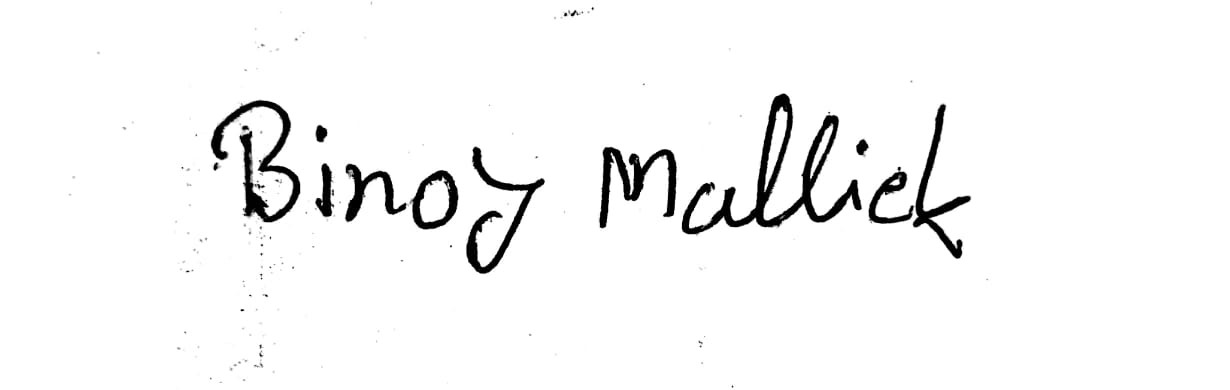 Binoy Mallick